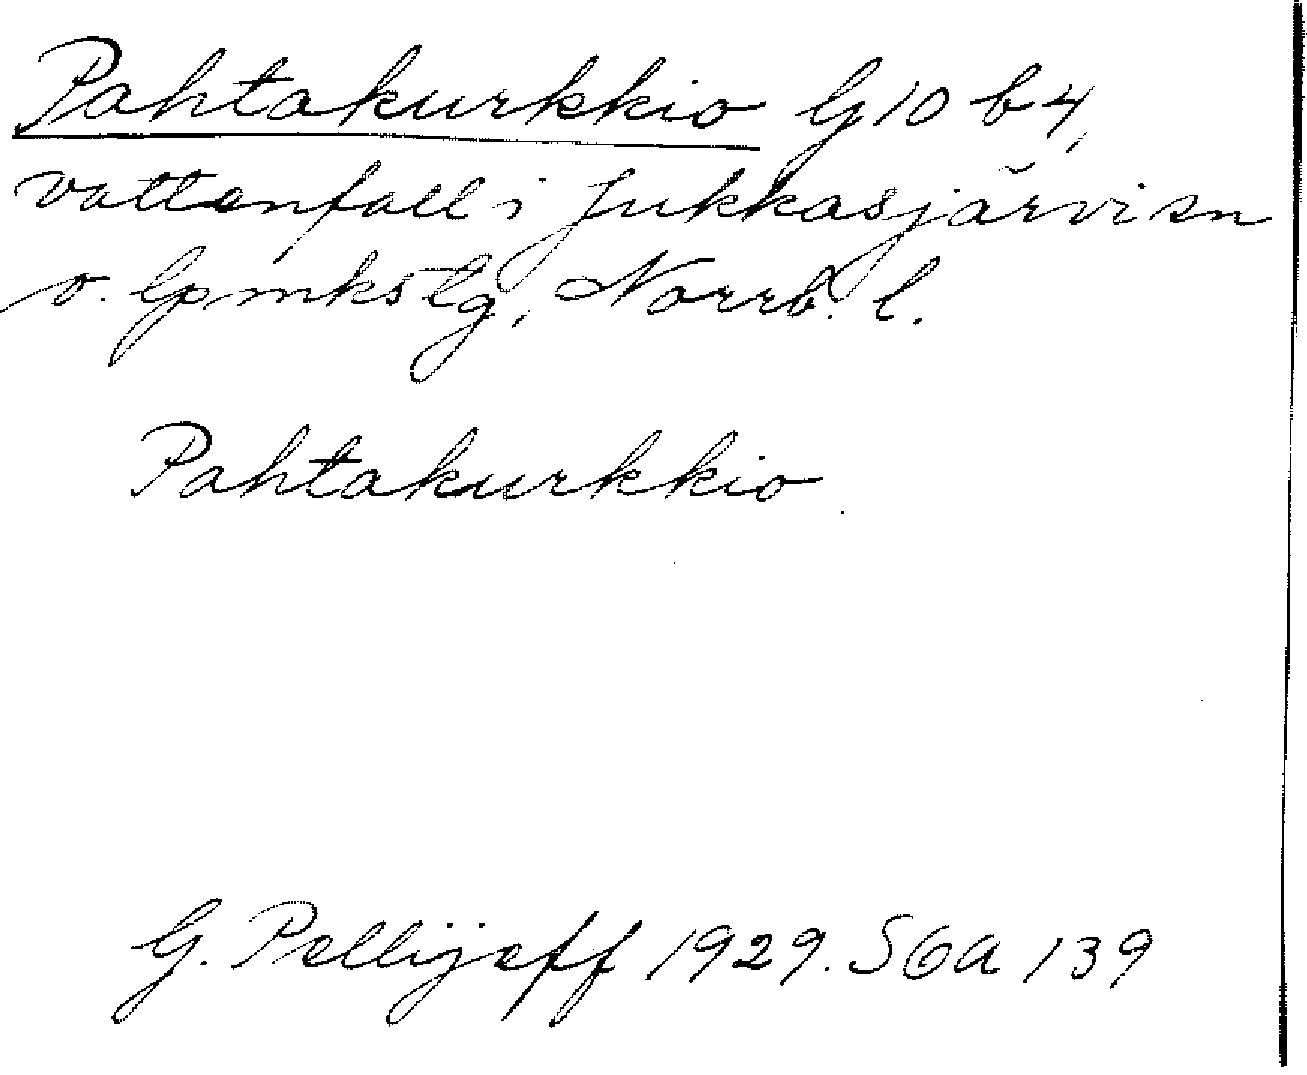 Pahtakurkkio G 10 b 4,
vattenfall i Jukkasjärvi sn
o. lpmkslg, Norrb. l.
Pahtakurkkio
G. Pellijeff 1929. SGA 139